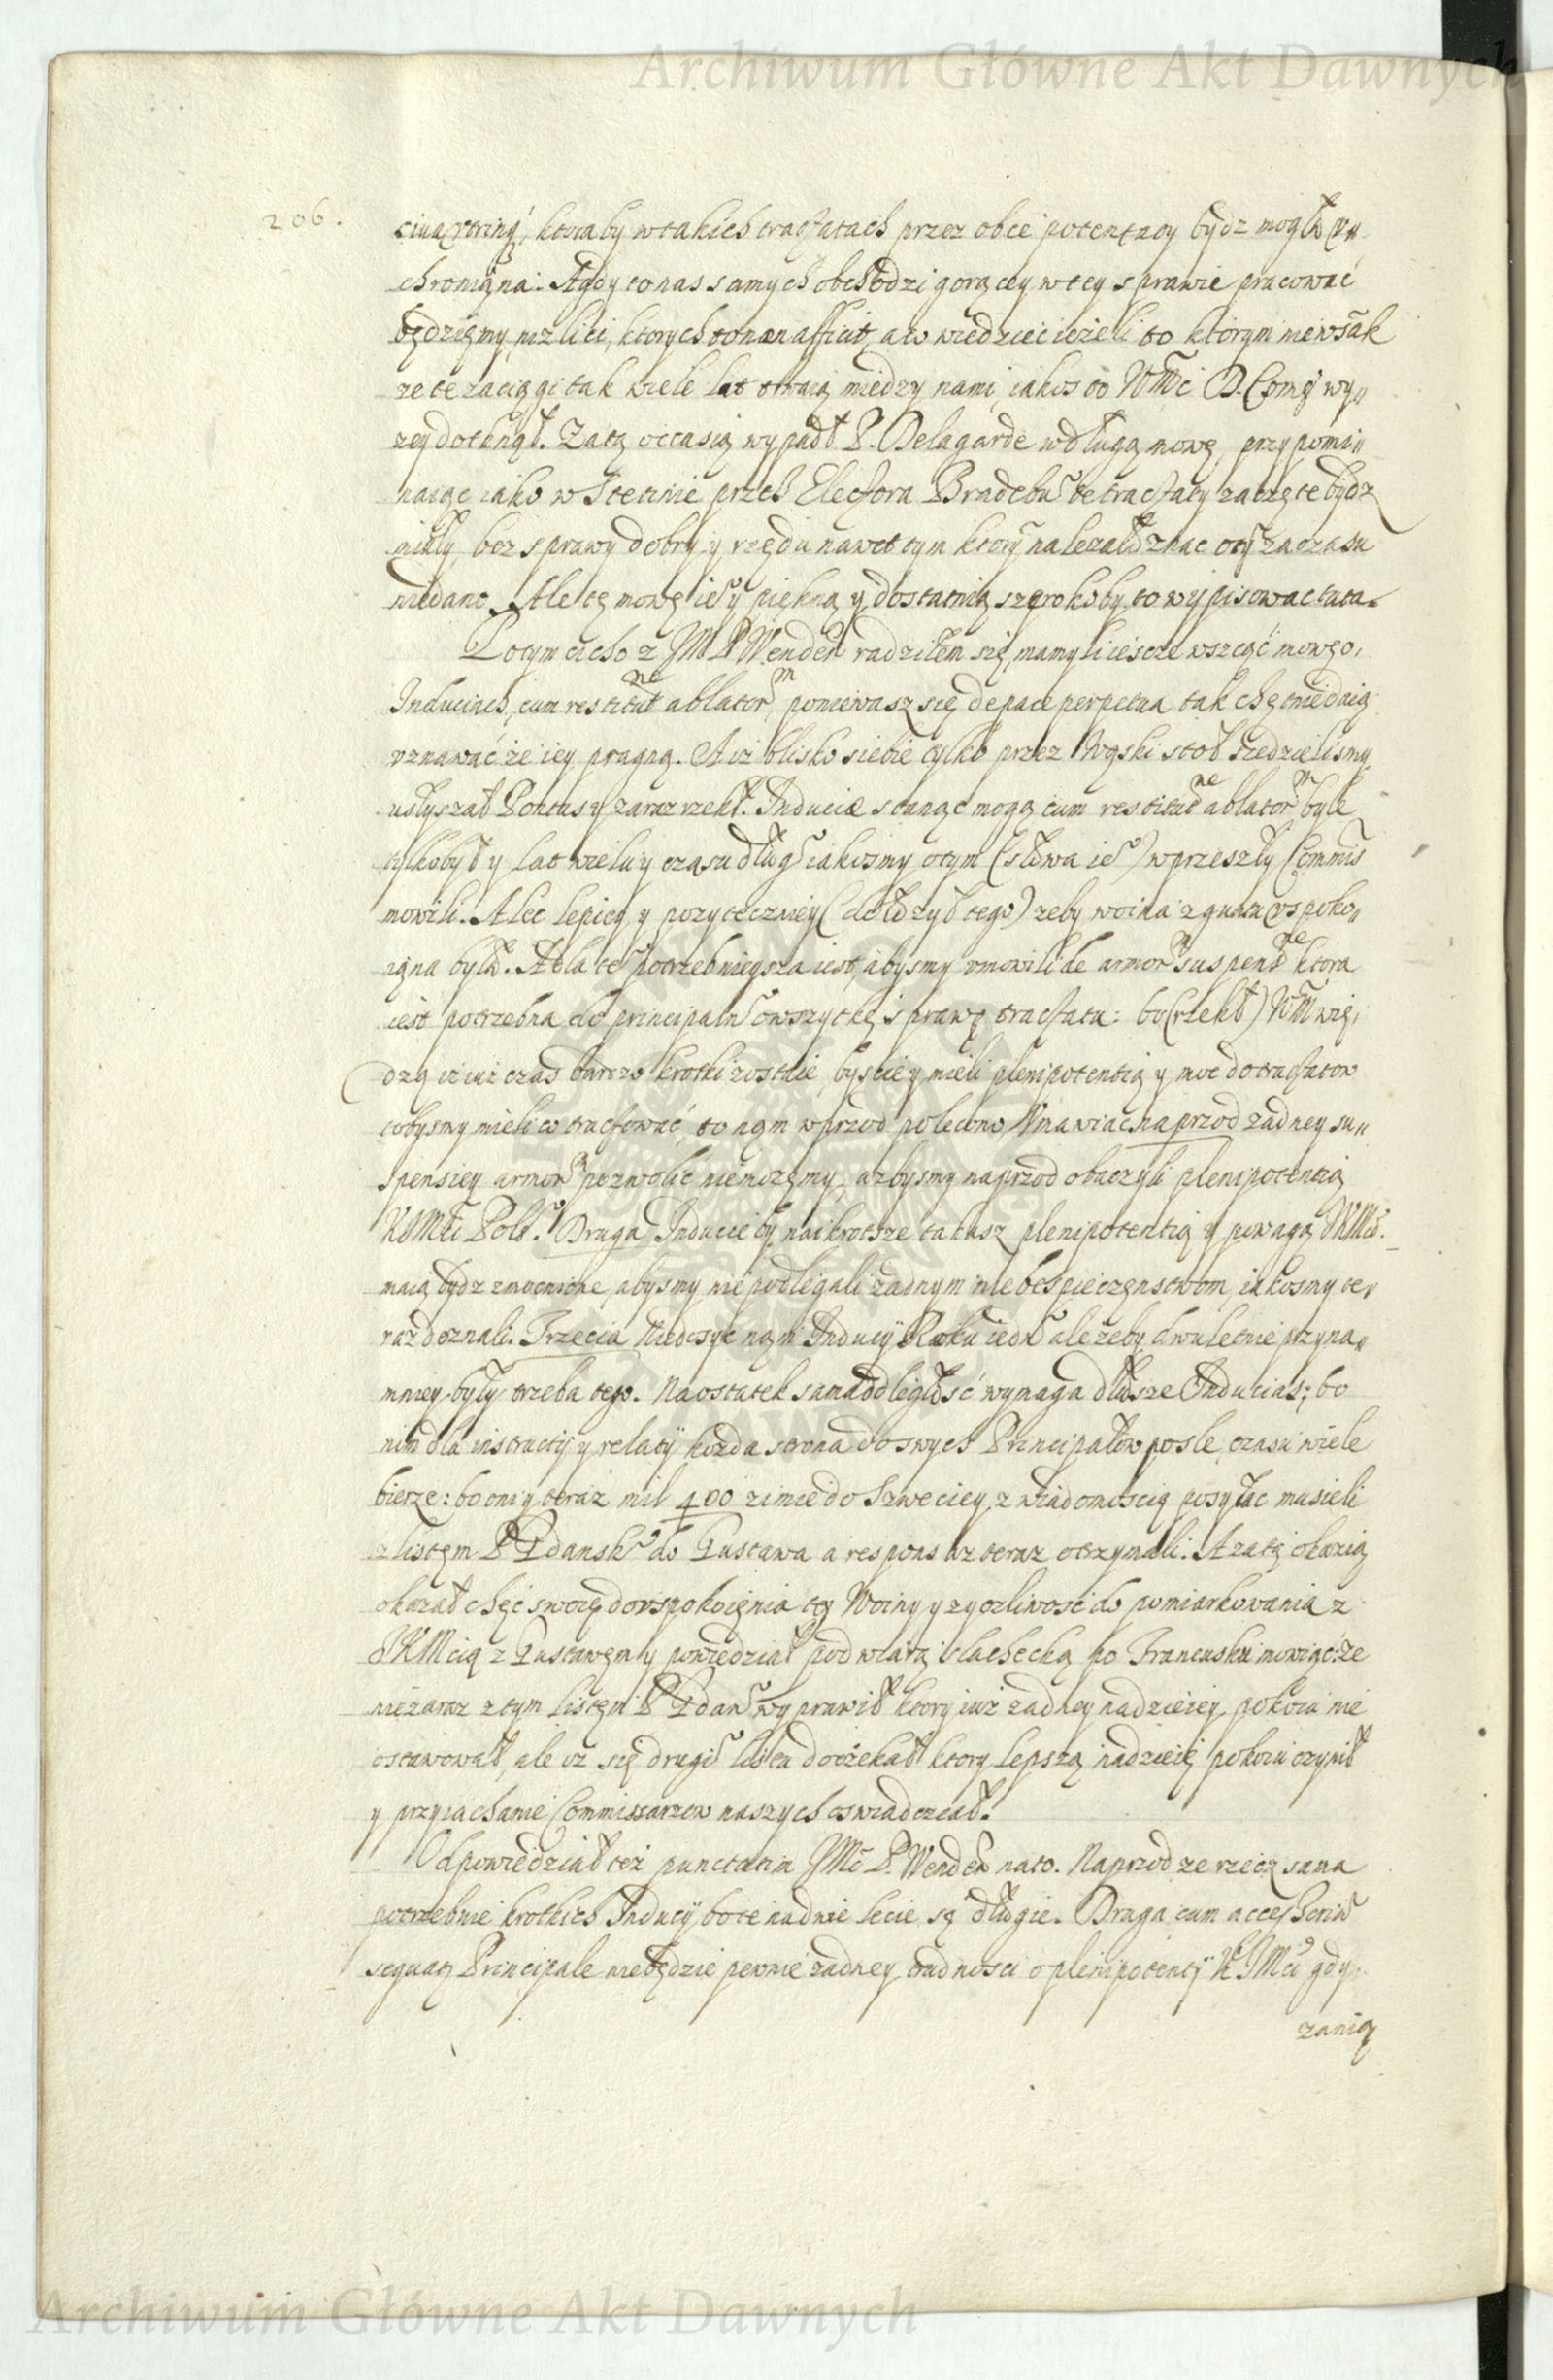 Archiwum Główne Akt Dawnych
206.
ktoraby w takich tractatach przez obce potentacy bydz mogła vu-
chroniona. A gdy to nas samych obchodzi goręcey w tey sprawie pracować
będziemy niz lici, ktorych to non afficit, a to wiedziec iezeli to ktorym niewsak
ze te zaciągi tak wiele lat trwaią miedzy nami, iakos to WMći P. Comę wy„
zey dotknął. Za tą occasią wypadł P. Delagarde w długą mowę, przypomi„
naiąc iako w Stetinie przez Electora Bradebu te tractaty zaczęte bydz
miały, bez sprawy dobry y rzędu nawet tym ktory nalezało znac oty za czasu
niedano. Ale tę mowę ie° y piękną y dostatnią szeroko by to wypisowac tuta.
Potym cicho z JM P Wenden radziłem się, mamyli iescze wszcząć mowę o,
Induciach, cum restitut^ne ablator^m, poniewasz się de pace perpetua tak chętnie dnią
vznawać że iey pragną. A iz blisko siebie tylko przez Wąski stoł siedzielismy,
usłyszał Pontus y zaraz rzekł. Induciæ stanąc mogą cum restitut^ne ablator^m byle
tylko były lat wielu y czasu dług° iakosmy otym (słowa ie°) w przeszły Commis
mowili. Alec lepiey y pozyteczniey (dołożył tego) zeby woina z gruntu vspoko„
iona była. A dla te° potrzebnieysza iest, abysmy vmowili de armor^m suspens^ne ktora
iest potrzebna do principaln° owszytkę sprawę tractatu: bo (rzekł) WM wie,
dzą iz iuż czas bardzo krotki zostaie, byscie y mieli plenipotentią y moc do tractatow
cobysmy mieli co tractować, to nam wprzod polecono Vmawiac naprzod zadney su„
spensiey armor^m pozwolić niemozemy, azbysmy naprzod obaczyli plenipotentią
KJMći Pols°. Druga Inducie by naikrotsze takasz plenipotentią y powagą JKMći.
maią bydz zmocnione, abysmy nie podlegali żadnym niebespieczenstwom, iakosmy te„
raz doznali. Trzecia Niedosyc nam Induciy Roku iedn° ale żeby dwuletnie przyna„
mniey były trzeba tego. Na ostatek sama odległość wymaga dłuższe Inducias; bo
nim dla instructij y relatij kożda strona do swych Principałow posle, czasu wiele
bierze: bo oni y teraz mil 400 zimie do Szweciey z wiadomoscią posyłac musieli
z listem P Gdansk° do Gustawa a respons az teraz otrzymali. A za tą okazią
okazał chęć swoię do vspokoienia tey Woiny y zyczliwość do pomiarkowania z
JKMcią z Gustawem y powiedział pod wiarą slachecką po Francusku mowiąc: że
nie zaraz z tym listem P Gdan° wyprawił ktory iuż zadney nadzieiey pokoiu nie
ostawował, ale iz się drugi° listu doczekał ktory lepszą nadzieię pokoiu czynił
y przyiachanie Commissarzow naszych oswiadczał.
Odpowiedział też punctatim JMć P. Wenden na to. Naprzod ze rzecz sama
potrzebuie krotkich Induciy bo te na dwie lecie są długie. Druga cum accessoriu
sequatur Principale niebędzie pewnie żadney trudnosci o plenipotentij KJMći gdy
zanią
Archiwum Główne Akt Dawnych